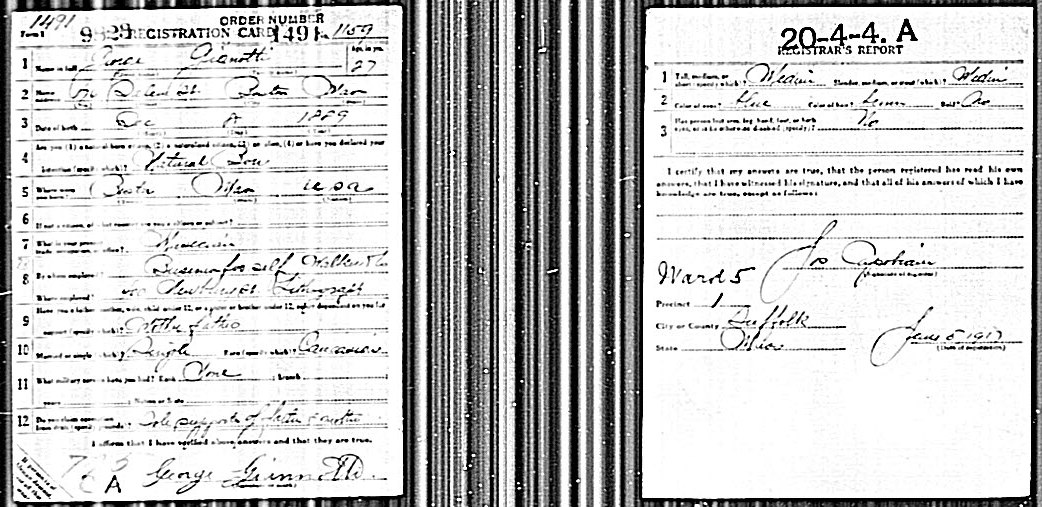 1491
ORDER NUMBER
Form 1 REGISTRATION CARD 1491 No. 1159
1 Name in full George Gianotti Age, in yrs. 27
2 Home address St. Boston Mass
3 Date of birth Dec 1889
4 Are you (1) a natural born citizen, (2) a naturalized citizen, (3) an alien, (4) or have you declared your
intention (specify which)? Natural Born
5 Where were you born? Boston Mass USA
6 If not a citizen, of what country are you a citizen or subject?
7 What is your present trade, occupation, or office? Musician
8 By whom employed? Business for self
Where employed? Lithograph
9 Have you a father, mother, wife, child under 12, or a sister or brother under 12, solely dependent on you for
support (specify which)? Mother father
10 Married or single (which)? Single Race (specify which)? Caucasian
11 What military service have you had? Rank None ; branch
years ; Nation or State
12 Do you claim exemption from draft (specify grounds)? Sole support of father & mother
I affirm that I have verified above answers and that they are true.
A George Giannotti
20-4-4. A
REGISTRAR'S REPORT
1 Tall, medium, or short (specify which)? Medium Slender, medium, or stout (which)? Medium
2 Color of eyes? Blue Color of hair? Brown Bald? No
3 Has person lost arm, leg, hand, foot, or both eyes, or is he otherwise disabled (specify)? No
I certify that my answers are true, that the person registered has read his own
answers, that I have witnessed his signature, and that all of his answers of which I have
knowledge are true, except as follows:
Jos
(Signature of registrar)
Ward 5
Precinct 1
City or County Suffolk
State Mass June 5 1917
(Date of registration)